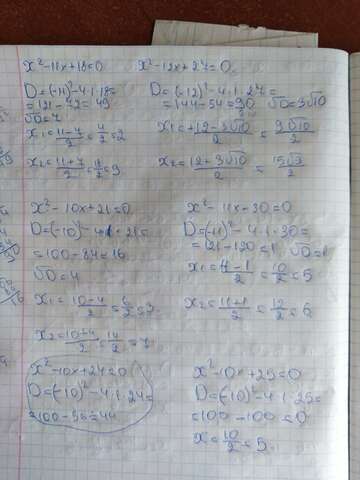 x²-11x+18=0
D=(-11)²-4·1·18=
=121-72=49
√D=7
x₁=11-7/2=4/2=2
x₂=11+7/2=18/2=9
x²-12x+27=0
D=(-12)²-4·1·27=
=144-54=90 √D=3√10
x₁=+12-3√10/2=9√10/2
x₂=12+3√10/2=
x²-10x+21=0
D=(-10)²-4·1·21=
=100-84=16
√D=4
x₁=10-4/2=6/2=3
x₂=10+4/2=14/2=7
x²-11x-30=0
D=(-11)²-4·1·30=
=121-120=1 √D=1
x₁=11-1/2=10/2=5
x₂=11+1/2=12/2=6
x²-10x+24=0
D=(-10)²-4·1·24=
=100-56=44
x²-10x+25=0
D=(-10)²-4·1·25=
=100-100=0
x=10/2=5